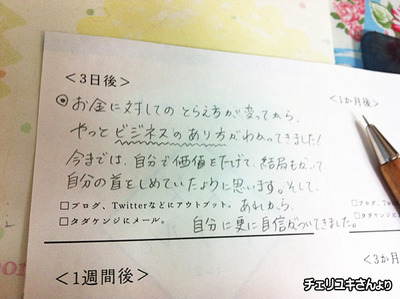 <3日後>
お金に対してのとらえ方が変ってから、
やっとビジネスのあり方がわかってきました!
今までは、自分で価値をさげて、結局もがいて
自分の首をしめていたように思います。そして、
□ブログ、Twitterなどにアウトプット。あれから
□タダケンジにメール。自分に更に自信がついてきました。
<1週間後>
<1か月後>
□ブログ、Tw
□タダケン
<3か月
チェリユキさんより